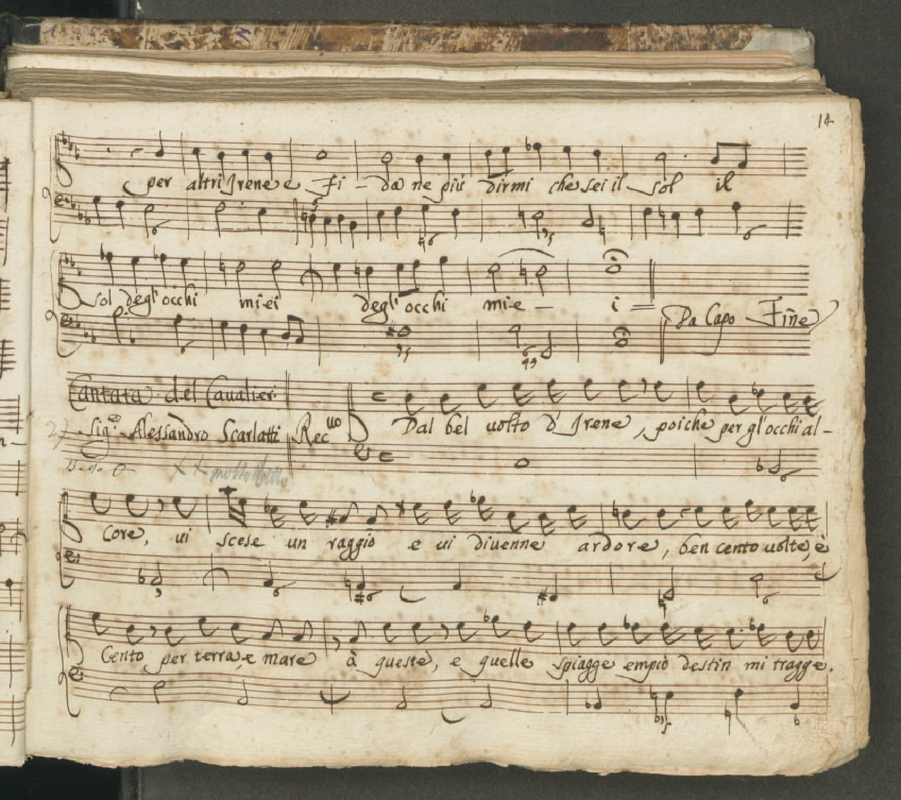 14
per altri Irene e fi - da ne più dirmi che sei il sol il
sol degl'occhi miei degl'occhi mi-e - i
Da Capo Fine
Cantata del Caualier
Sig.re Alessandro Scarlatti Rec.uo Dal bel uolto d'Irene, poiche per gl'occhi al -
Core, ui scese un raggio e ui diuenne ardore, ben cento uolte, è
Cento per terra e mare à queste, e quelle spiagge empio destin mi tragge.